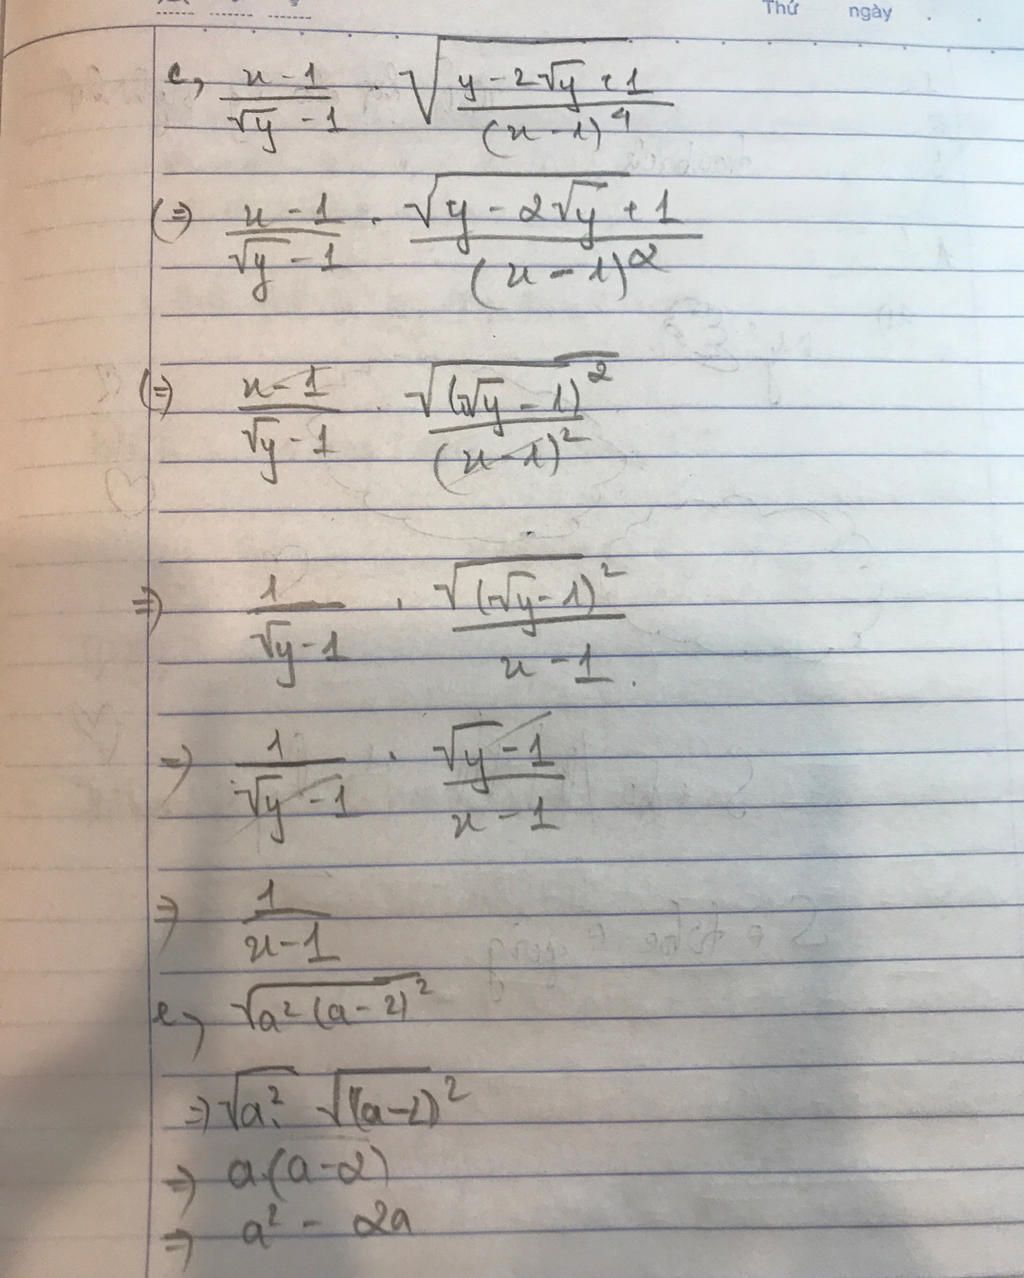 Thứ ngày
c, \frac{x-1}{\sqrt{y}-1} \cdot \sqrt{\frac{y-2\sqrt{y}+1}{(x-1)^4}}
(=) \frac{x-1}{\sqrt{y}-1} \cdot \frac{\sqrt{y-2\sqrt{y}+1}}{(x-1)^2}
(=) \frac{x-1}{\sqrt{y}-1} \cdot \frac{\sqrt{(\sqrt{y}-1)^2}}{(x-1)^2}
=) \frac{1}{\sqrt{y}-1} \cdot \frac{\sqrt{(\sqrt{y}-1)^2}}{x-1}.
=) \frac{1}{\sqrt{y}-1} \cdot \frac{\sqrt{y}-1}{x-1}
=) \frac{1}{x-1}
e, \sqrt{a^2(a-2)^2}
=) \sqrt{a^2} \cdot \sqrt{(a-2)^2}
=) a.(a-2)
=) a^2 - 2a